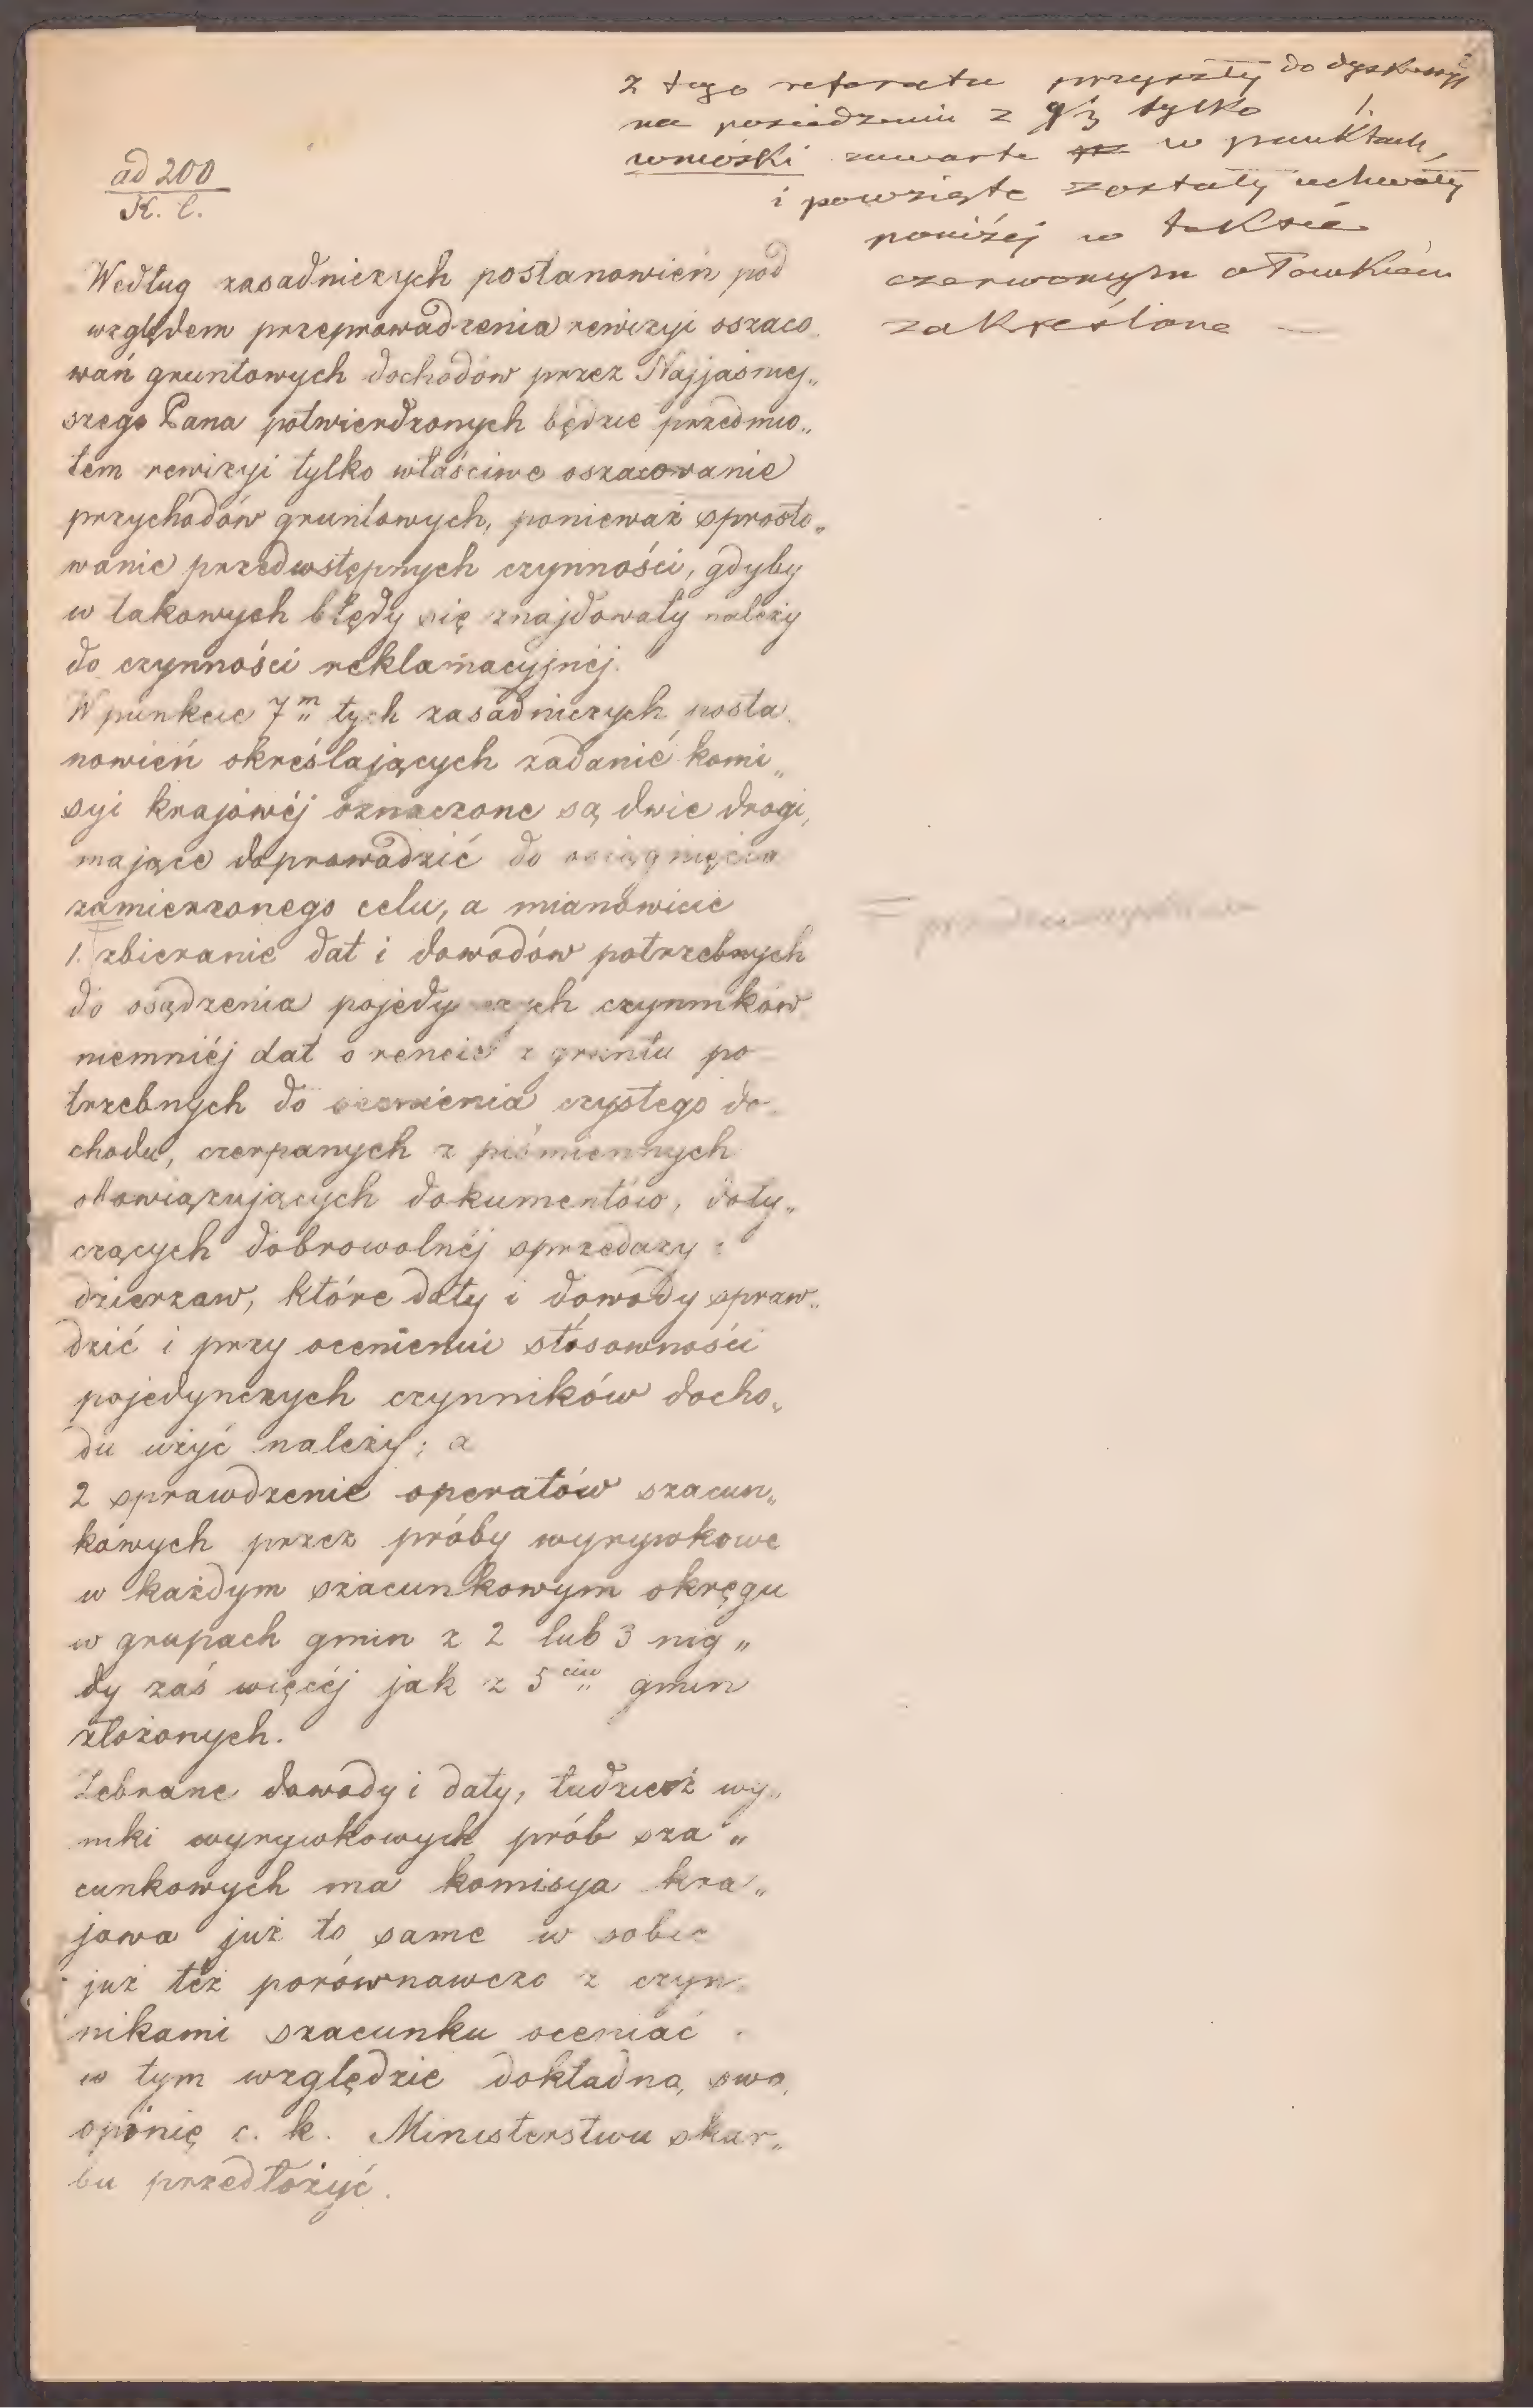 z tego referatu przyszły do dyskusyi
na posiedzeniu z 9/3 tylko
wnioski zawarte w punktach
i powzięte zostały uchwały
poniżej w tekscie
czerwonym ołówkiem
zakreślone —
ad 200
K. l.
Według zasadniczych postanowień pod
względem przeprowadzenia rewizyi oszaco„
wań gruntowych dochodów przez Najjaśniej„
szego Pana potwierdzonych będzie przedmio„
tem rewizyi tylko właściwe oszacowanie
przychodów gruntowych, ponieważ sprosto„
wanie przedwstępnych czynności, gdyby
w takowych błędy się znajdowały należy
do czynności reklamacyjnéj.
W punkcie 7m tych zasadniczych posta„
nowień określających zadanié komi„
syi krajowéj oznaczone są dwie drogi,
mające doprowadzić do osiągnięcia
zamierzonego celu, a mianowicie
1. zbieranie dat i dowodów potrzebnych
do osądzenia pojedynczych czynników
niemniéj dat o rencie z gruntu po
trzebnych do ocenienia czystego do„
chodu, czerpanych z piśmiennych
obowiązujących dokumentów, doty„
czących dobrowolnéj sprzedaży i
dzierzaw, które daty i dowody spraw„
dzić i przy ocenieniu stósowności
pojedynczych czynników docho„
du użyć należy; a
2 sprawdzenie operatów szacun„
kowych przez próby wyrywkowe
w każdym szacunkowym okręgu
w grupach gmin z 2 lub 3 nig„
dy zaś więcéj jak z 5ciu gmin
złożonych.
Zebrane dowody i daty, tudzież wy„
niki wyrywkowych prób sza„
cunkowych ma komisya kra„
jowa już to same w sobie
już téż porównawczo z czyn„
nikami szacunku oceniać i
w tym względzie dokładną swą
opinię c. k. Ministerstwu skar„
bu przedłożyć.